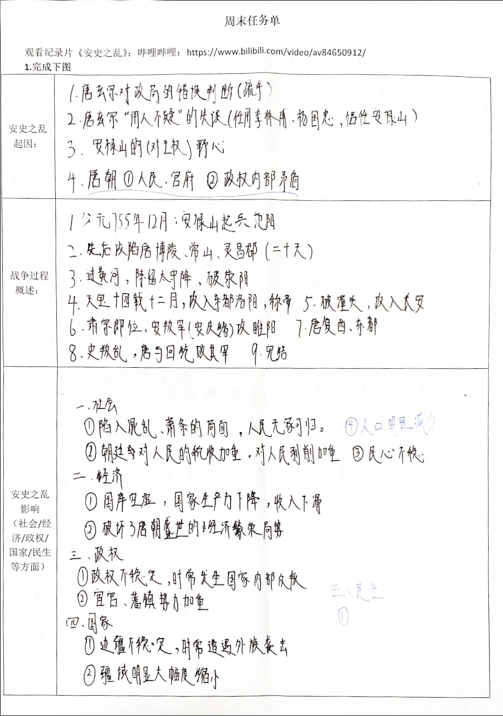 周末任务单
观看纪录片《安史之乱》：哔哩哔哩：https://www.bilibili.com/video/av84650912/
1.完成下图
安史之乱
起因：
1. 唐玄宗对政局的错误判断（疏于）
2. 唐玄宗"用人不疑"的失误（任用李林甫、杨国忠，信任安禄山）
3. 安禄山的（对王权）野心
4. 唐朝 ①人民、官府 ②政权内部矛盾
战争过程
概述：
1 公元755年12月：安禄山起兵范阳
2. 先后攻陷唐博陵、常山、灵昌郡（二十天）
3. 过黄河，陈留太守降，破荥阳
4. 天宝十四载十二月，攻入东都洛阳，称帝 5. 破潼关，攻入长安
6. 肃宗即位，安叛军（安庆绪）攻睢阳 7. 唐复西、东都
8. 史叛乱，唐与回纥破其军 9. 完结
安史之乱
影响
（社会/经
济/政权/
国家/民生
等方面）
一. 社会
①陷入混乱、萧条的局面，人民无家可归。 ④人口明显减少
②朝廷对人民的税收加重，对人民剥削加重 ③民心不稳
二. 经济
①国库空虚，国家生产力下降，收入下滑
②破坏了唐朝盛世的经济繁荣局势
三. 政权
①政权不稳定，时常发生国家内部反叛
②宦官、藩镇势力加重
五. 民生
①
四. 国家
①边疆不稳定，时常遭遇外族袭击
②疆域明显大幅度缩小